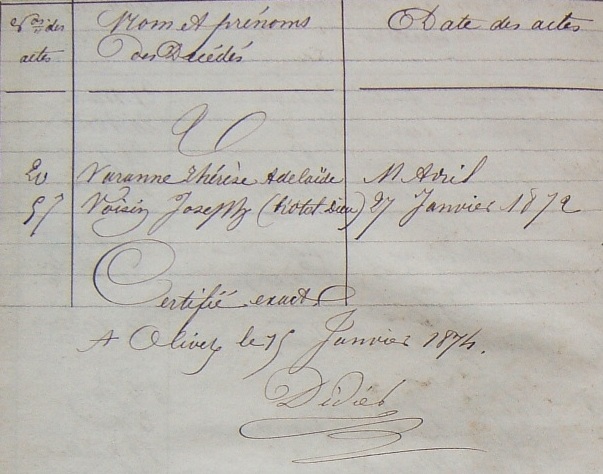 Nos des actes | Nom et prénoms des Décédés | Date des actes
V
20 Varanne Thérèse Adelaïde 11 Avril
57 Voisin Joseph (Hotel-Dieu) 27 Janvier 1872
Certifié exact.
A Olivet le 15 Janvier 1874.